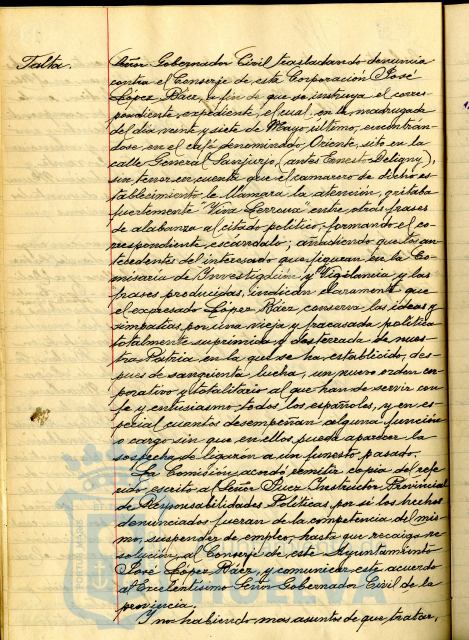 Falta.
Señor Gobernador Civil trasladando denuncia
contra el Conserje de esta Corporación José
López Ráez, a fin de que se instruya el corres-
pondiente expediente, el cual, en la madrugada
del día veinte y siete de Mayo último, encontran-
dose en el café denominado, Oriente, sito en la
calle General Sanjurjo, (antes Ernesto Deligny),
sin tener en cuenta que el camarero de dicho es-
tablecimiento le llamara la atención, gritaba
fuertemente "Viva Lerroux" entre otras frases
de alabanza al citado político, formando el co-
rrespondiente escándalo; añadiendo que los an-
tecedentes del interesado que figuran en la Co-
misaría de Investigación y Vigilancia y las
frases producidas, indican claramente que
el expresado López Ráez conserva las ideas y
simpatías por una vieja y fracasada política
totalmente suprimida y desterrada de nues-
tra Patria en la que se ha establecido, des-
pues de sangrienta lucha, un nuevo orden cor-
porativo y totalitario al que han de servir con
fe y entusiasmo, todos los españoles, y en es-
pecial cuantos desempeñan alguna función
o cargo sin que en ellos pueda aparecer la
sospecha de ligazón a un funesto pasado.
La Comisión acordó remitir copia del refe-
rido escrito al Señor Juez Instructor Provincial
de Responsabilidades Políticas, por si los hechos
denunciados fueran de la competencia del mis-
mo, suspender de empleo, hasta que recaiga re-
solución, al Conserje de este Ayuntamiento
José López Ráez, y comunicar este acuerdo
al Excelentísimo Señor Gobernador Civil de la
provincia.
Y no habiendo mas asuntos de que tratar,
PORTUS MARIS